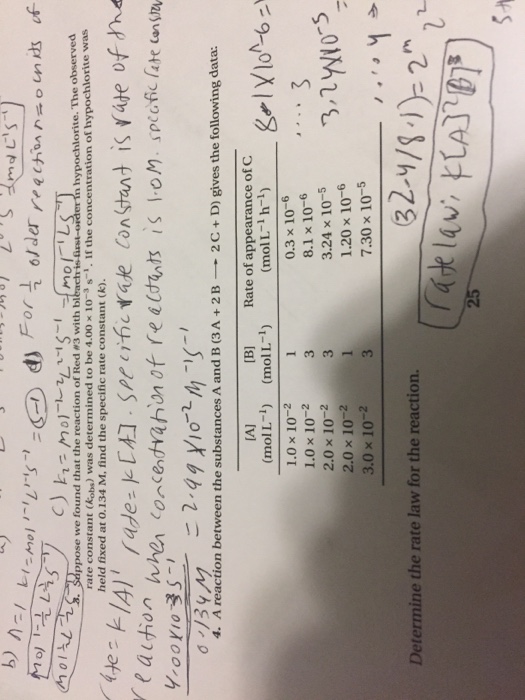 b) n=1 k1=mol¹⁻¹L¹⁻¹s⁻¹ = s⁻¹ d) For ½ order reaction n=0 units of
c) k2=mol¹⁻²L²⁻¹s⁻¹ = mol⁻¹Ls⁻¹
3. Suppose we found that the reaction of Red #3 with bleach is first-order in hypochlorite. The observed
rate constant (kobs) was determined to be 4.00 × 10⁻³ s⁻¹. If the concentration of hypochlorite was
held fixed at 0.134 M, find the specific rate constant (k).
rate=k[A]¹ rate=k[A]. specific rate constant is rate of the
reaction when concentration of reactants is 1.0M. specific rate constant
4.00x10⁻³s⁻¹
0.134M = 2.99 x10⁻² M⁻¹s⁻¹
4. A reaction between the substances A and B (3A + 2B → 2C + D) gives the following data:
[A] [B] Rate of appearance of C
(mol L⁻¹) (mol L⁻¹) (mol L⁻¹ h⁻¹)
1.0 × 10⁻² 1 0.3 × 10⁻⁶
1.0 × 10⁻² 3 8.1 × 10⁻⁶
2.0 × 10⁻² 3 3.24 × 10⁻⁵
2.0 × 10⁻² 1 1.20 × 10⁻⁶
3.0 × 10⁻² 3 7.30 × 10⁻⁵
3.24x10⁻⁵
Determine the rate law for the reaction.
(32.4/8.1)=2ᵐ
rate law: k[A]²[B]³
25